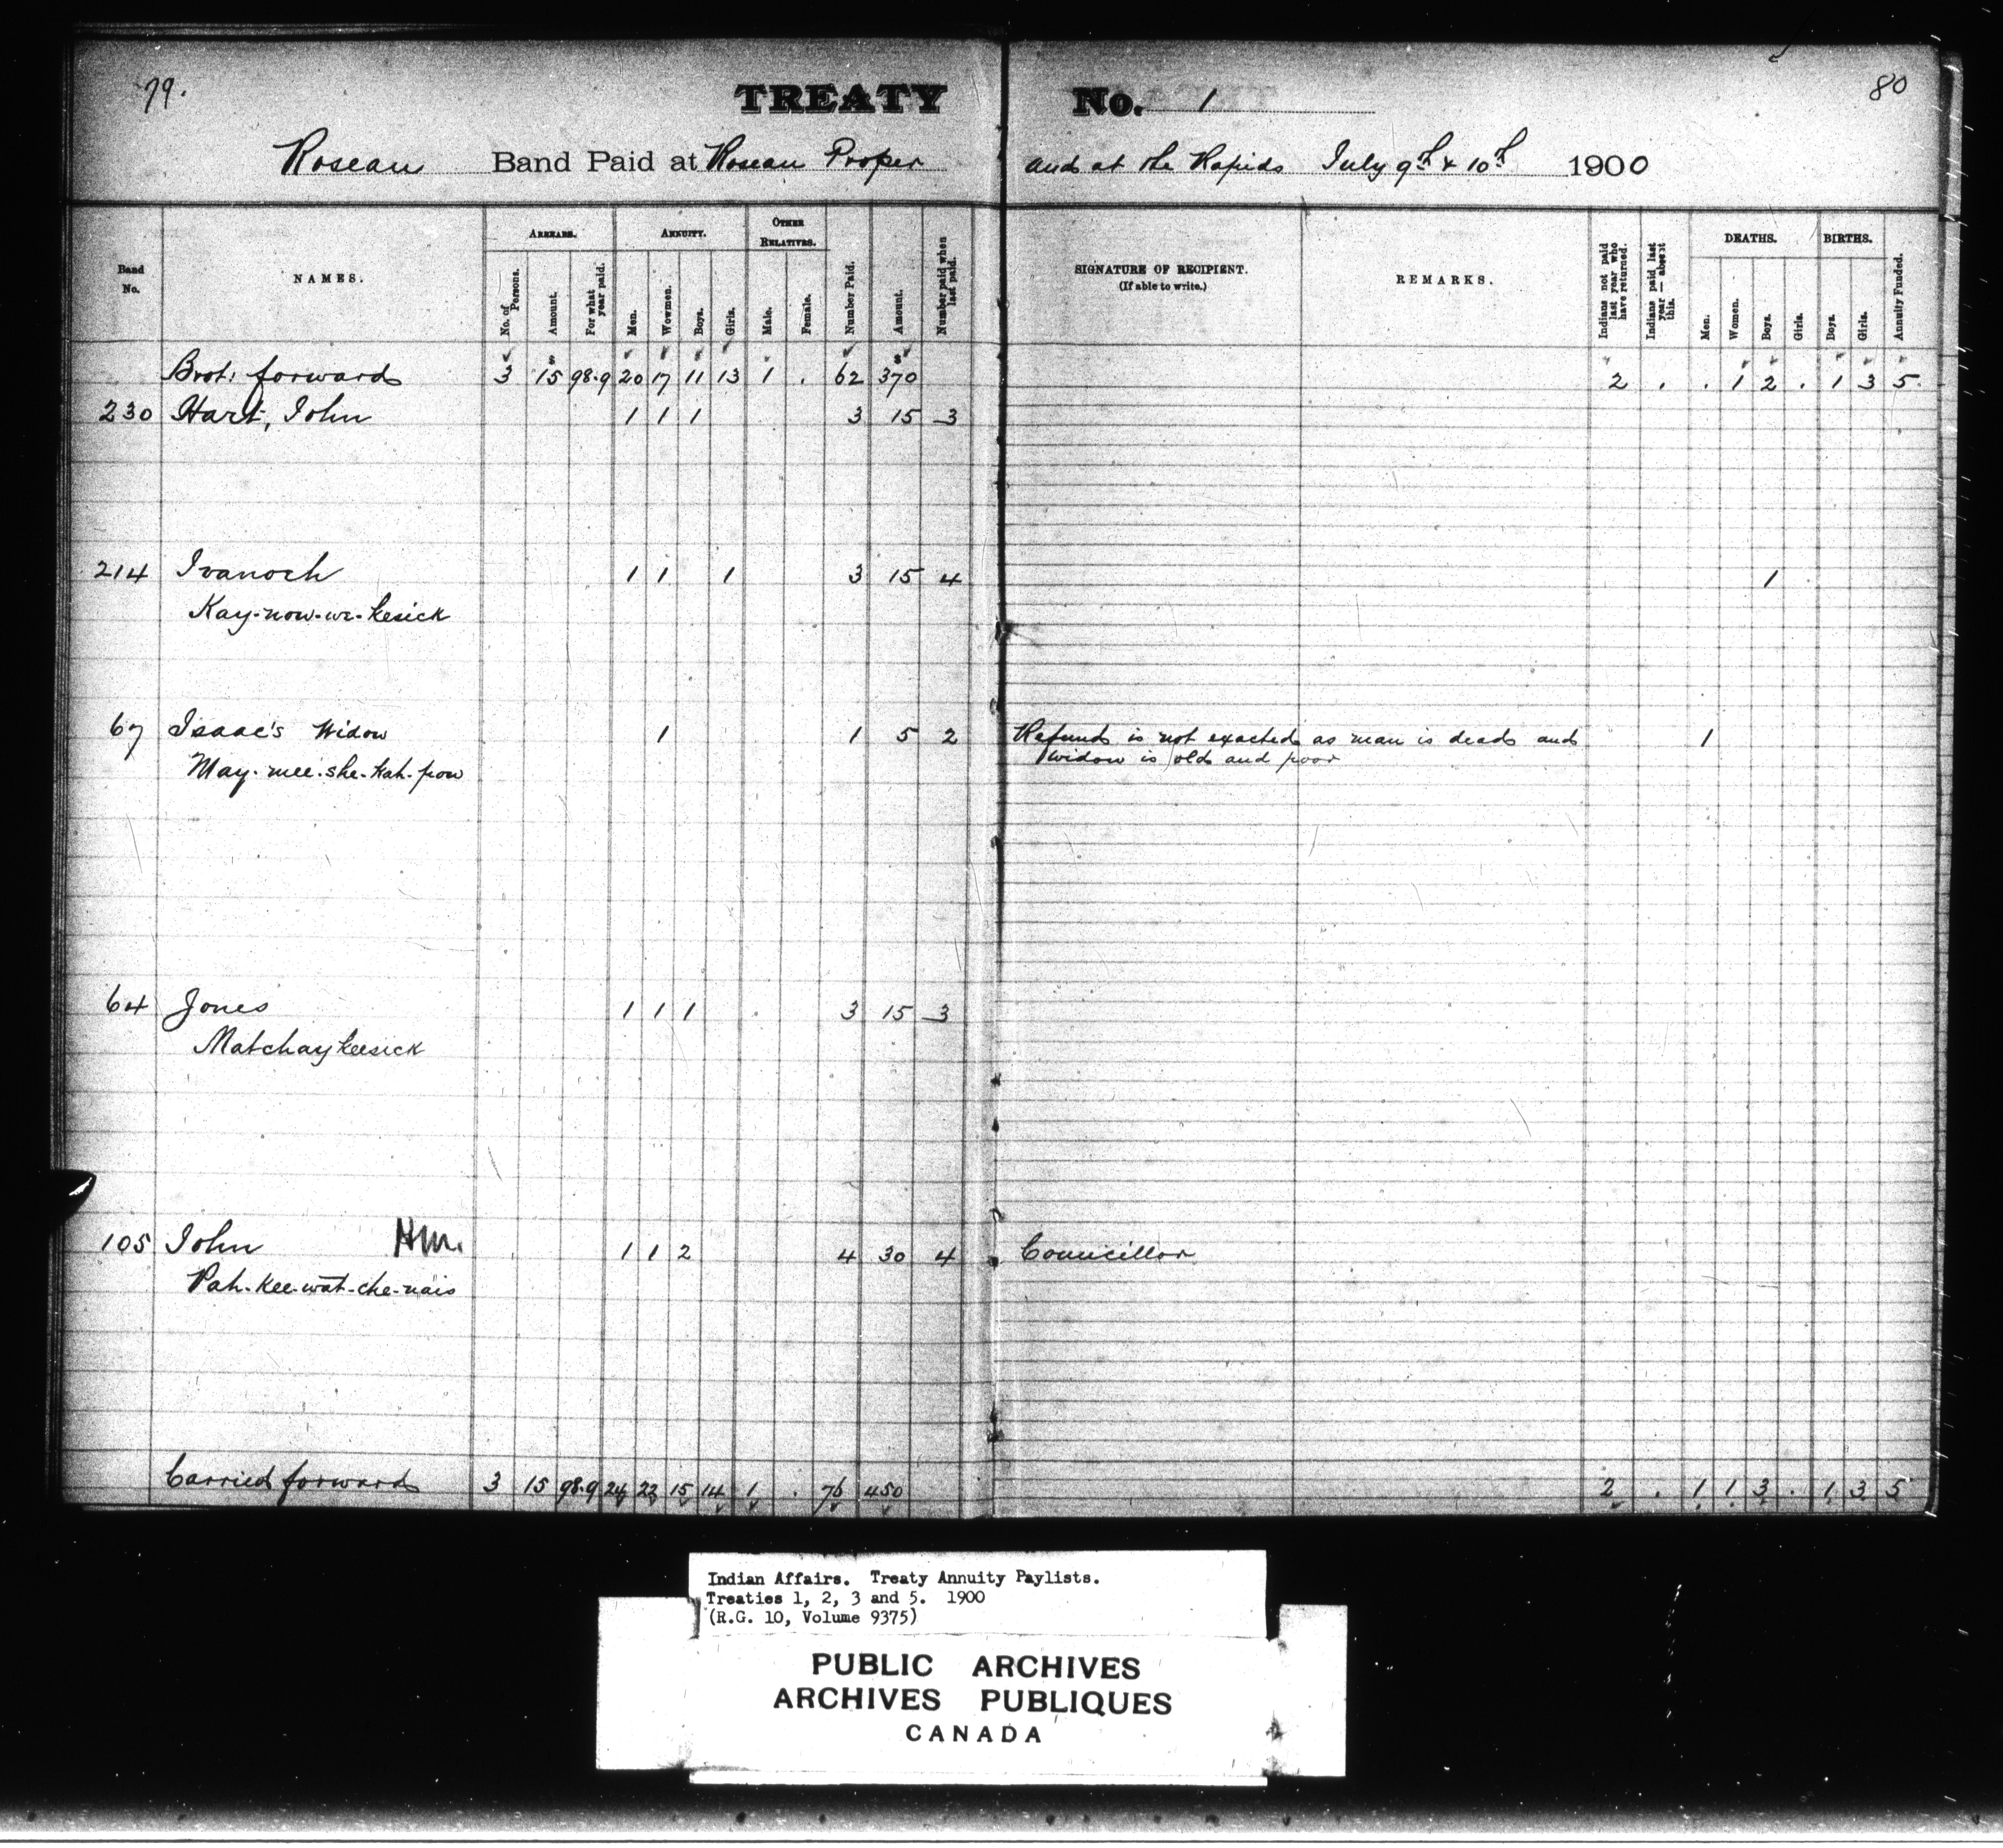 79.
TREATY No. 1
80
Roseau Band Paid at Roseau Proper and at the Rapids July 9th & 10th 1900
Band No.
NAMES.
ARREARS.
No. of Persons.
Amount.
For what year paid.
ANNUITY.
Men.
Wowmen.
Boys.
Girls.
OTHER RELATIVES.
Male.
Female.
Number Paid.
Amount.
Number paid when last paid.
SIGNATURE OF RECIPIENT.
(If able to write.)
REMARKS.
Indians not paid last year who have returned.
Indians paid last year — absent this.
DEATHS.
Men.
Women.
Boys.
Girls.
BIRTHS.
Boys.
Girls.
Annuity Funded.
Brot. forward 3 15 98.9 20 17 11 13 1 . 62 370 2 . . 1 2 . 1 3 5.
230 Hart, John 1 1 1 3 15 3
214 Ivanoch 1 1 1 3 15 4 1
Kay-now-we-kesick
67 Isaac's Widow 1 1 5 2 Refund is not exacted as man is dead and 1
May-mee-she-kah-pow widow is old and poor
64 Jones 1 1 1 3 15 3
Matchaykeesick
105 John HM. 1 1 2 4 30 4 Councillor
Pah-kee-wat-che-nais
Carried forward 3 15 98.9 24 22 15 14 1 . 76 450 2 . 1 1 3 . 1 3 5
Indian Affairs. Treaty Annuity Paylists.
Treaties 1, 2, 3 and 5. 1900
(R.G. 10, Volume 9375)
PUBLIC ARCHIVES
ARCHIVES PUBLIQUES
CANADA